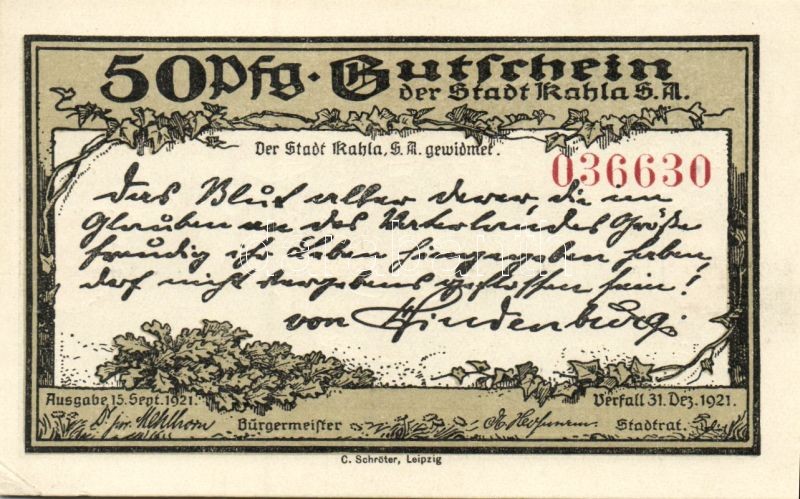 50 Pfg. Gutschein
der Stadt Kahla S.A.
Der Stadt Kahla, S.A. gewidmet.
036630
Das Blut aller derer, die im
Glauben an des Vaterlandes Größe
freudig ihr Leben hingegeben haben,
darf nicht vergebens geflossen sein!
von Hindenburg.
Ausgabe 15. Sept. 1921.
Verfall 31. Dez. 1921.
Dr. jur. Mehlhorn Bürgermeister
Stadtrat.
C. Schröter, Leipzig